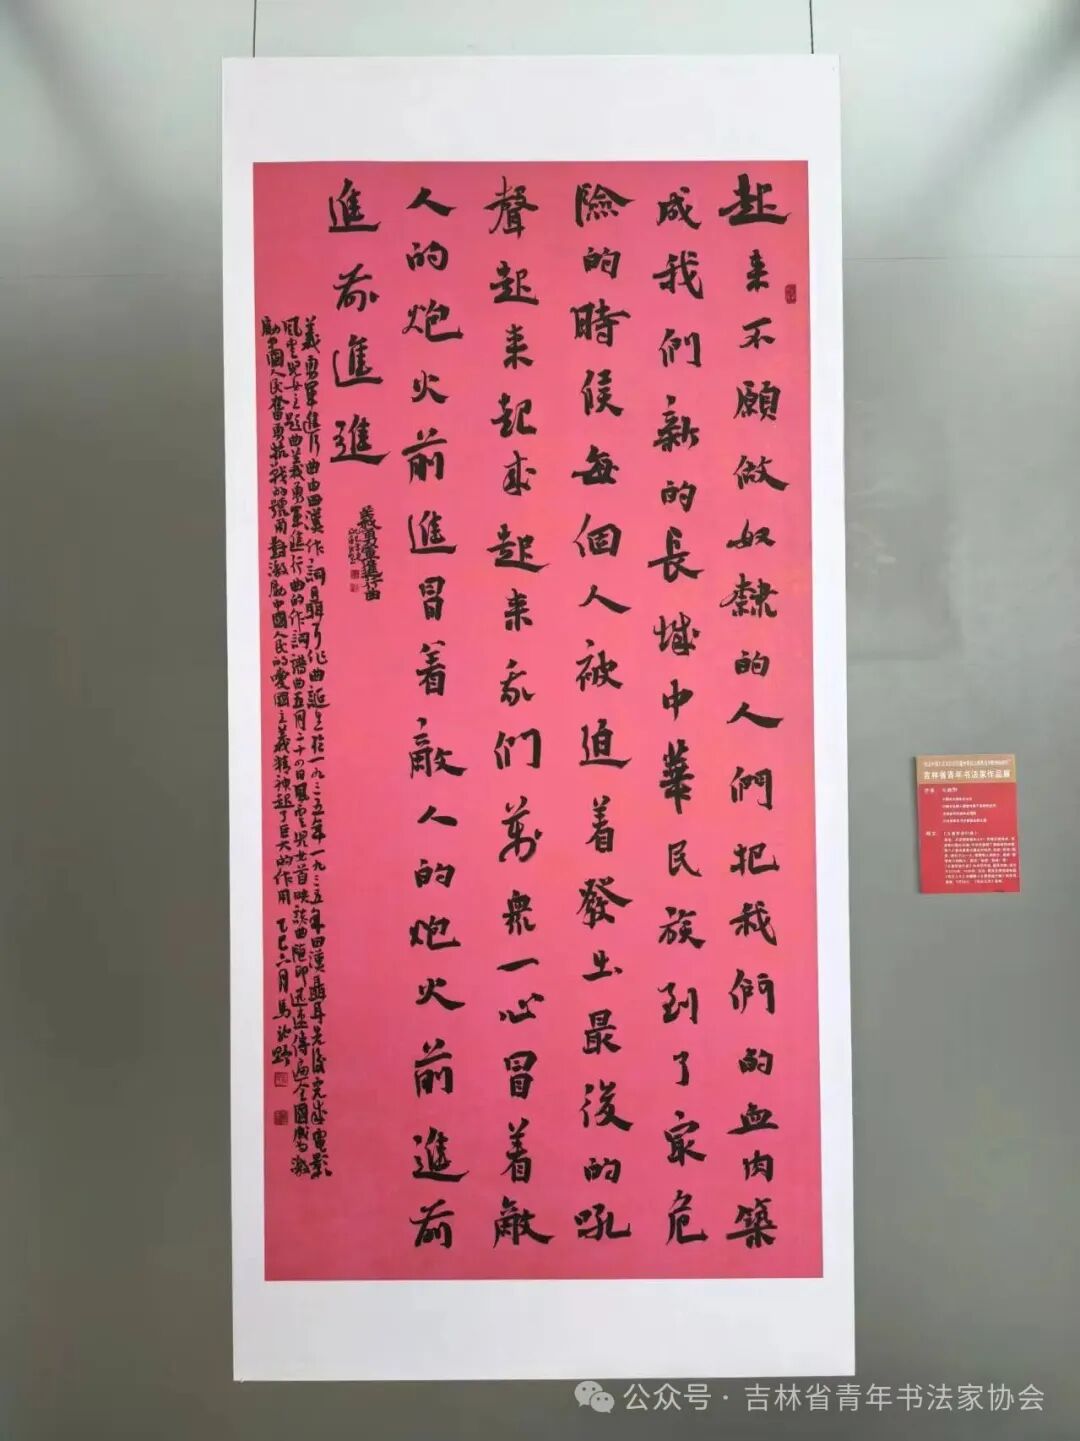 起来不願做奴隸的人們把我們的血肉築
成我們新的長城中華民族到了最危
險的時候每個人被迫着發出最後的吼
聲起来起来起来我们萬衆一心冒着敵
人的炮火前進冒着敵人的炮火前進前
進前進進
義勇軍進行曲
義勇軍進行曲由田漢作詞聶耳作曲誕生於一九三五年一九三五年田漢聶耳先後完成電影
風雲兒女主題曲義勇軍進行曲的作詞譜曲五月二十四日風雲兒女首映該曲隨即迅速傳遍全國成为激
勵中國人民奮勇抗戰的號角對激勵中國人民的愛國主義精神起了巨大的作用 乙巳六月馬
吉林省青年书法家作品展
公众号·吉林省青年书法家协会